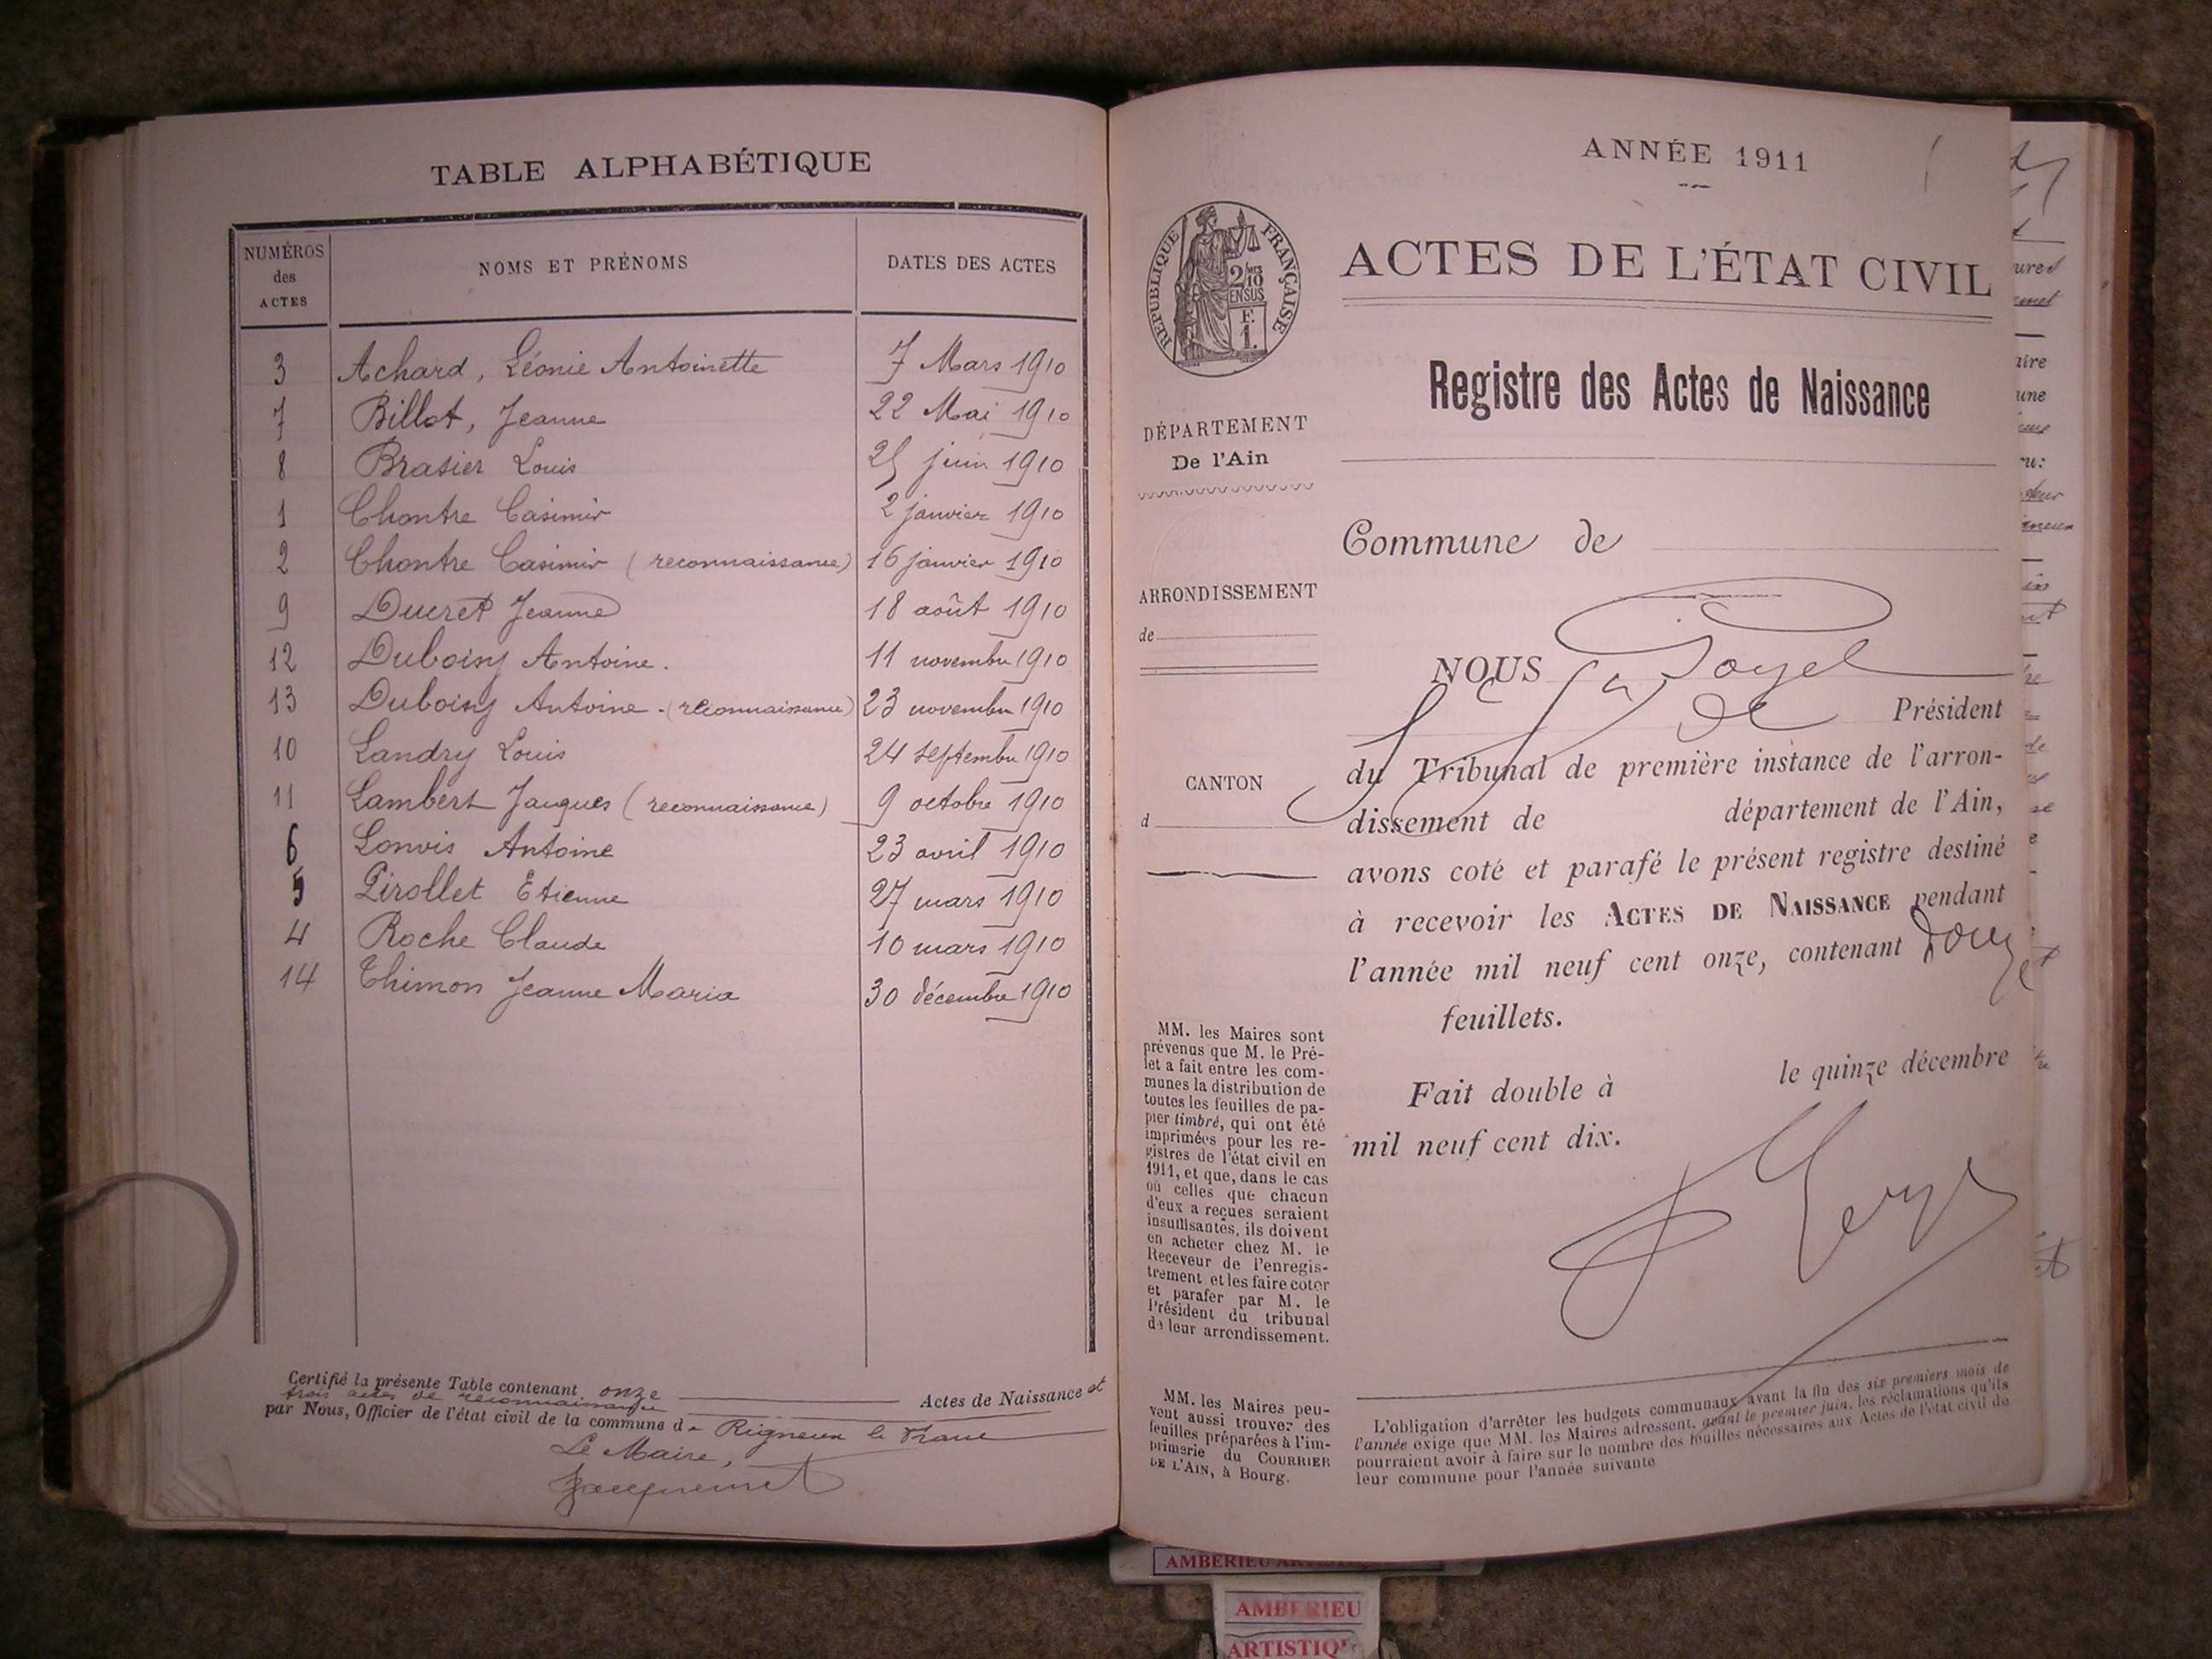 TABLE ALPHABÉTIQUE
NUMÉROS des ACTES
NOMS ET PRÉNOMS
DATES DES ACTES
3 Achard, Léonie Antoinette 7 Mars 1910
7 Billot, Jeanne 22 Mai 1910
8 Brasier Louis 25 juin 1910
1 Chontre Casimir 2 janvier 1910
2 Chontre Casimir (reconnaissance) 16 janvier 1910
9 Ducret Jeanne 18 août 1910
12 Duboisy Antoine. 11 novembre 1910
13 Duboisy Antoine - (reconnaissance) 23 novembre 1910
10 Landry Louis 24 septembre 1910
11 Lambert Jacques (reconnaissance) 9 octobre 1910
6 Lonvis Antoine 23 avril 1910
5 Pirollet Etienne 27 mars 1910
4 Roche Claude 10 mars 1910
14 Thimon Jeanne Maria 30 décembre 1910
Certifié la présente Table contenant onze Actes de Naissance et
trois actes de reconnaissance
par Nous, Officier de l'état civil de la commune de Rigneux le Franc
Le Maire,
Jacquemet
ANNÉE 1911
RÉPUBLIQUE FRANÇAISE
2/10 EN SUS
F. 1.
ACTES DE L'ÉTAT CIVIL
Registre des Actes de Naissance
DÉPARTEMENT
De l'Ain
Commune de
ARRONDISSEMENT
de
NOUS
Président
du Tribunal de première instance de l'arron-
CANTON
d
dissement de département de l'Ain,
avons coté et parafé le présent registre destiné
à recevoir les ACTES DE NAISSANCE pendant
l'année mil neuf cent onze, contenant douze
feuillets.
Fait double à le quinze décembre
mil neuf cent dix.
MM. les Maires sont
prévenus que M. le Pré-
fet a fait entre les com-
munes la distribution de
toutes les feuilles de pa-
pier timbré, qui ont été
imprimées pour les re-
gistres de l'état civil en
1911, et que, dans le cas
où celles que chacun
d'eux a reçues seraient
insuffisantes, ils doivent
en acheter chez M. le
Receveur de l'enregis-
trement et les faire coter
et parafer par M. le
Président du tribunal
de leur arrondissement.
MM. les Maires peu-
vent aussi trouver des
feuilles préparées à l'im-
primerie du COURRIER
DE L'AIN, à Bourg.
L'obligation d'arrêter les budgets communaux avant la fin des six premiers mois de
l'année exige que MM. les Maires adressent, avant le premier juin, les réclamations qu'ils
pourraient avoir à faire sur le nombre des feuilles nécessaires aux Actes de l'état civil de
leur commune pour l'année suivante
AMBERIEU
AMBERIEU
ARTISTIQ